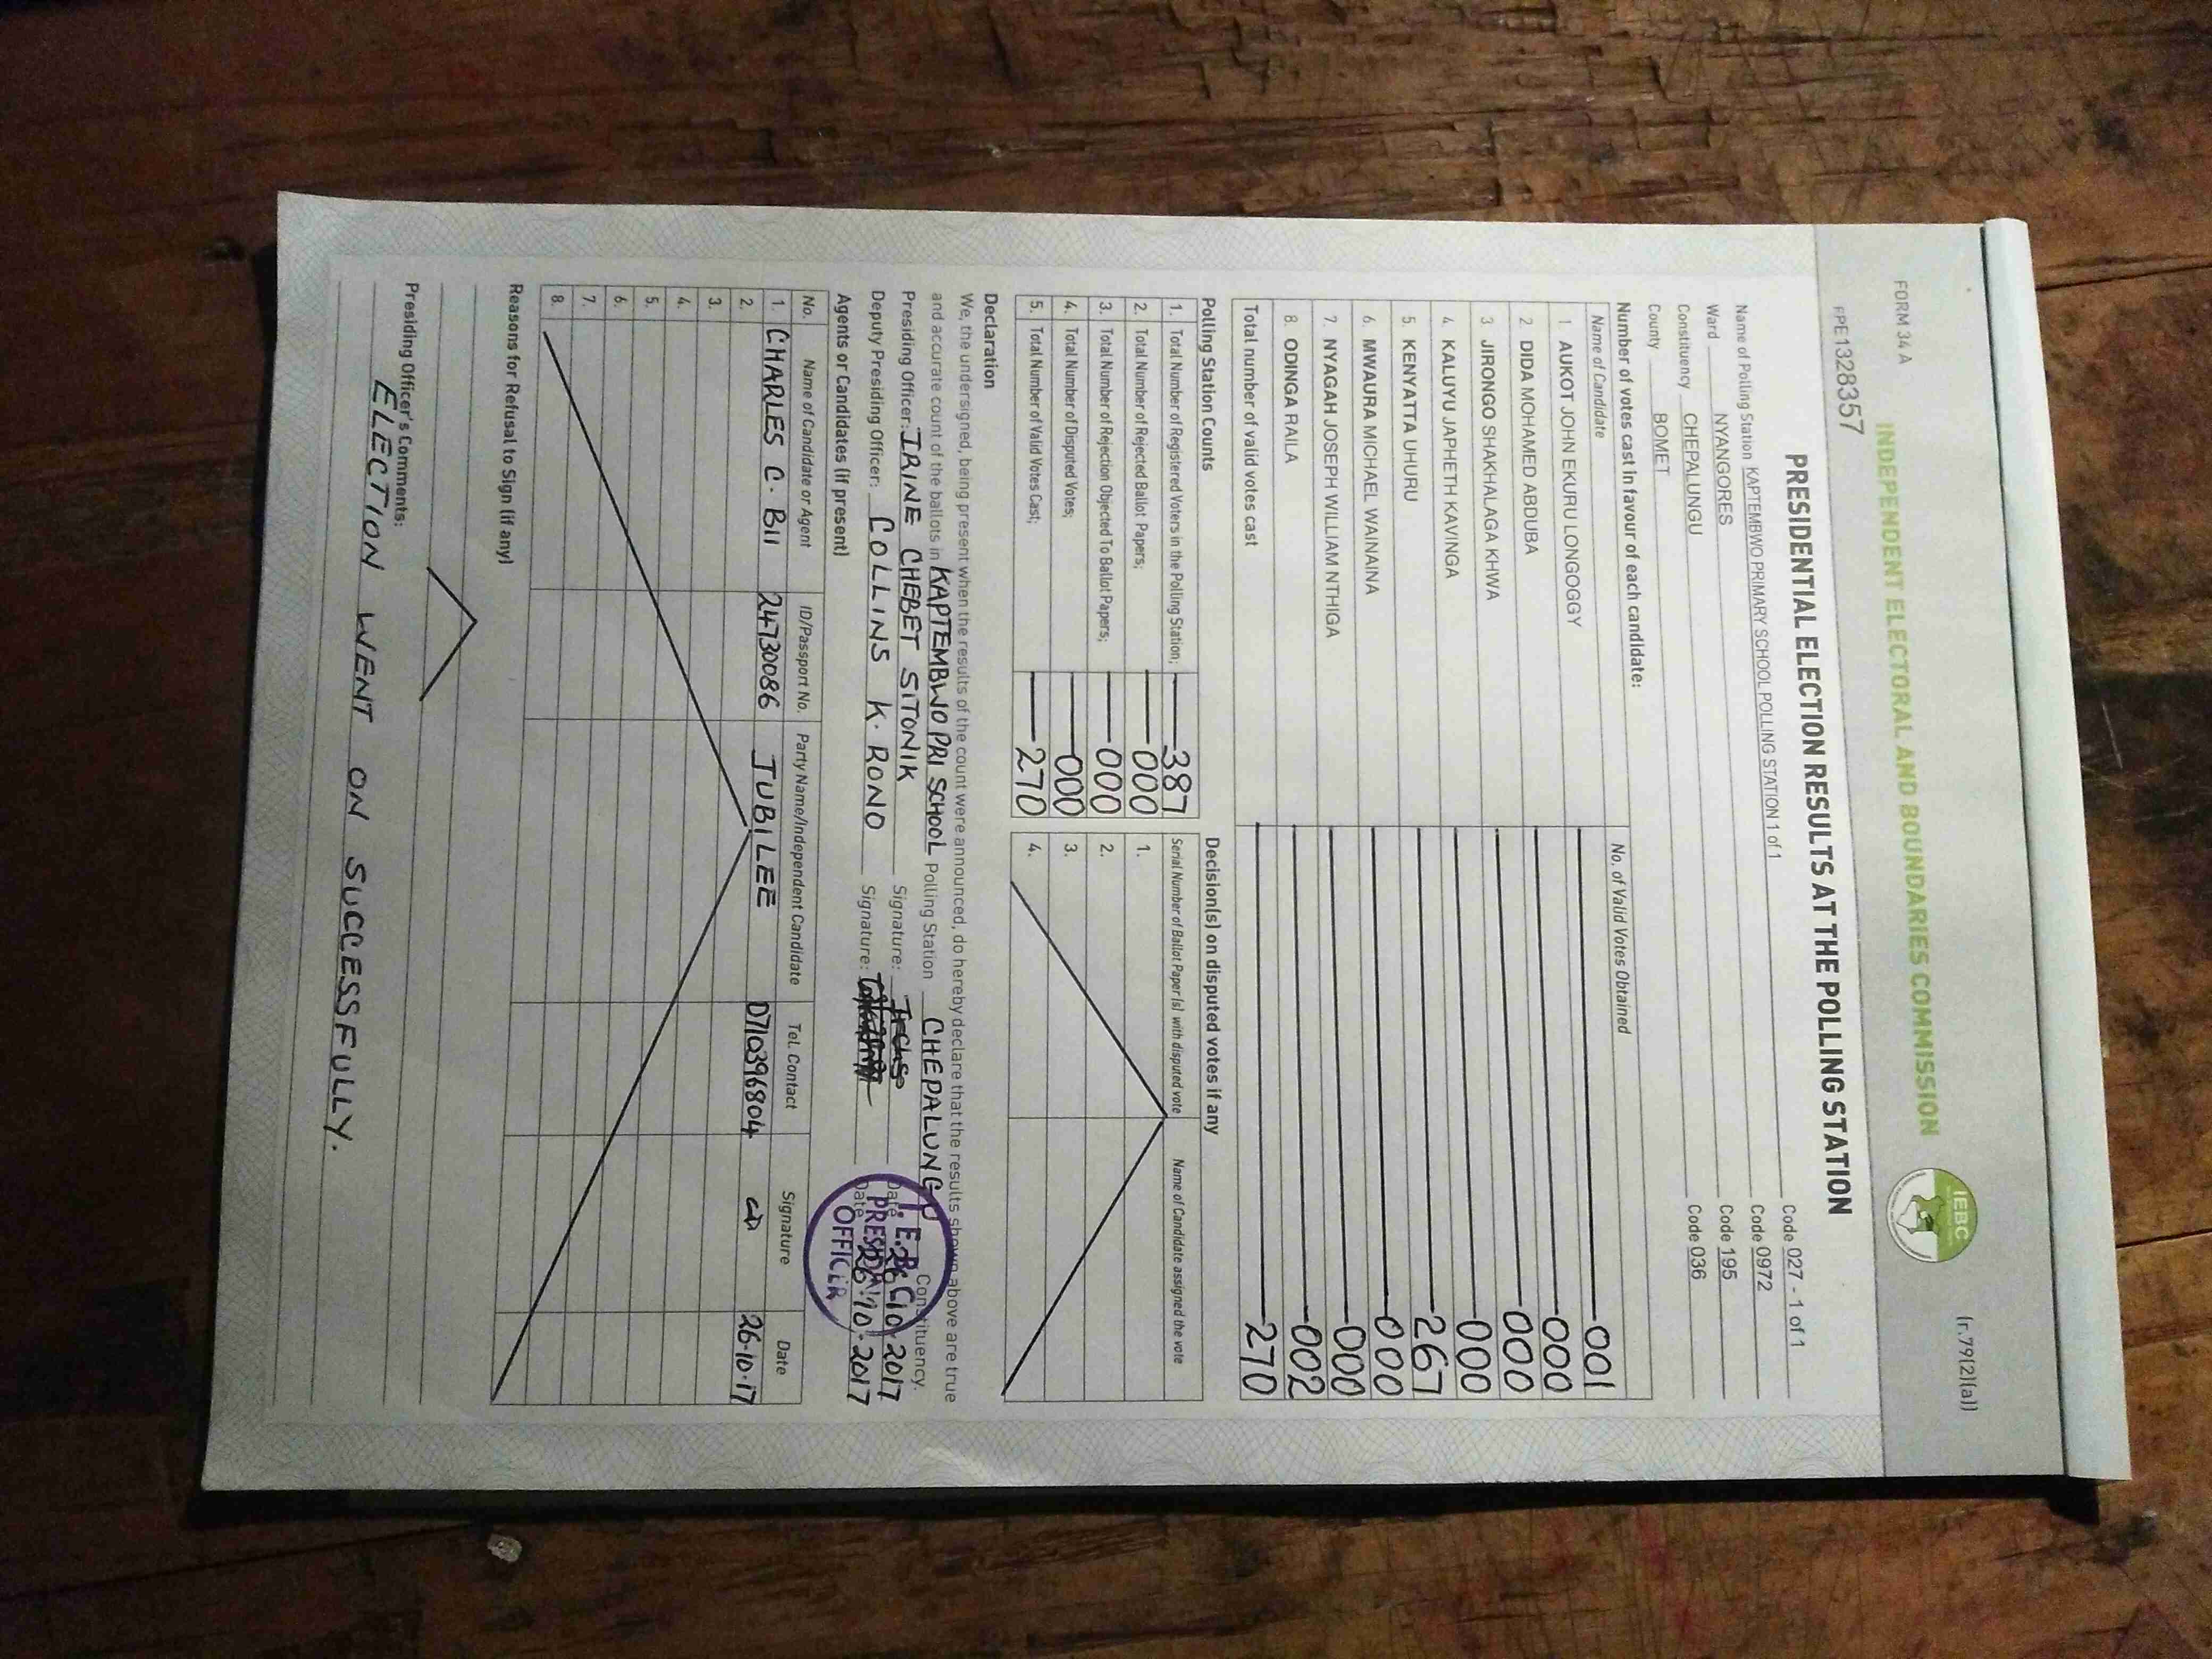 FORM 34 A
(r.79(2)(a))
INDEPENDENT ELECTORAL AND BOUNDARIES COMMISSION
IEBC
PPE1328357
PRESIDENTIAL ELECTION RESULTS AT THE POLLING STATION
Name of Polling Station KAPTEMBWO PRIMARY SCHOOL POLLING STATION 1 of 1 Code 027 - 1 of 1
Ward NYANGORES Code 0972
Constituency CHEPALUNGU Code 195
County BOMET Code 036
Number of votes cast in favour of each candidate:
Name of Candidate No. of Valid Votes Obtained
1 AUKOT JOHN EKURU LONGOGGY 001
2 DIDA MOHAMED ABDUBA 000
3 JIRONGO SHAKHALAGA KHWA 000
4. KALUYU JAPHETH KAVINGA 000
5. KENYATTA UHURU 267
6. MWAURA MICHAEL WAINAINA 000
7. NYAGAH JOSEPH WILLIAM NTHIGA 000
8. ODINGA RAILA 002
Total number of valid votes cast 270
Polling Station Counts
1. Total Number of Registered Voters in the Polling Station; 387
2. Total Number of Rejected Ballot Papers; 000
3. Total Number of Rejection Objected To Ballot Papers; 000
4. Total Number of Disputed Votes; 000
5. Total Number of Valid Votes Cast; 270
Decision(s) on disputed votes if any
Serial Number of Ballot Paper (s) with disputed vote Name of Candidate assigned the vote
1.
2.
3.
4.
Declaration
We, the undersigned, being present when the results of the count were announced, do hereby declare that the results shown above are true
and accurate count of the ballots in KAPTEMBWO PRI SCHOOL Polling Station CHEPALUNGU Constituency.
Presiding Officer: IRINE CHEBET SITONIK Signature: Date 26-10-2017
Deputy Presiding Officer: COLLINS K. RONO Signature: Date 26-10-2017
I.E.B.C
OFFICER
Agents or Candidates (if present)
No. Name of Candidate or Agent ID/Passport No. Party Name/Independent Candidate Tel. Contact Signature Date
1. CHARLES C. BII 24730086 JUBILEE 0710396804 26-10-17
2.
3.
4.
5.
6.
7.
8.
Reasons for Refusal to Sign (if any)
Presiding Officer's Comments:
ELECTION WENT ON SUCCESSFULLY.